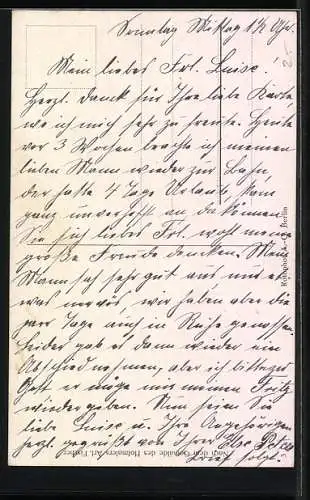 Sonntag Mittag 1½ Uhr.
Mein liebes Frl. Luise!
Herzl. Danck für Ihre liebe Karte,
wo ich mich sehr zu freute. Heute
vor 3 Wochen brachte ich meinen
lieben Mann wieder zur Bahn,
der hatte 4 Tage Urlaub, kam
ganz unverhofft an, da können
Sie sich liebes Frl. wohl meine
große Freude denken. Mein
Mann sah sehr gut aus und er
war nervös, wir haben aber die
paar Tage auch in Ruhe genossen.
Leider gab es dann wieder ein
Abschied nehmen, aber ich bitte zu
Gott er möge mir meinen Fritz
wiedergeben. Nun seien Sie
liebe Luise u. Ihre Angehörigen
herzl. gegrüßt von Ihrer Else Peters
Brief folgt.
Rotophot A.-G. Berlin
Nach dem Gemälde des Hofmalers Art. Fischer